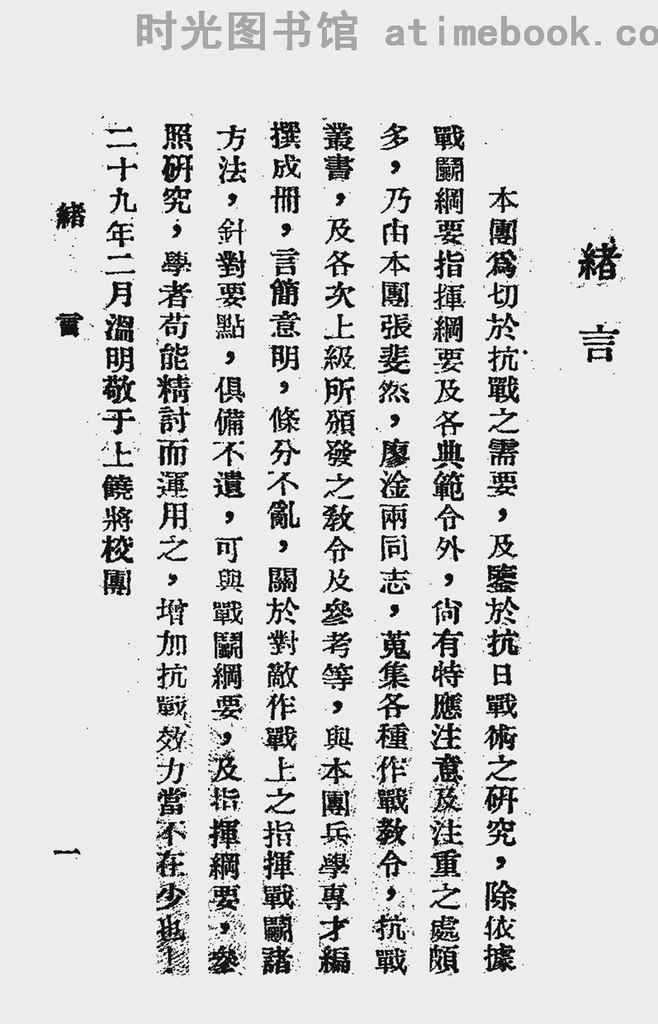 时光图书馆 atimebook.co
緒言
本團爲切於抗戰之需要，及鑒於抗日戰術之研究，除依據
戰鬭綱要指揮綱要及各典範令外，尙有特應注意及注重之處頗
多，乃由本團張斐然，廖淦兩同志，蒐集各種作戰教令，抗戰
叢書，及各次上級所頒發之教令及參考等，與本團兵學專才編
撰成冊，言簡意明，條分不亂，關於對敵作戰上之指揮戰鬭諸
方法，針對要點，俱備不遺，可與戰鬭綱要，及指揮綱要，參
照研究，學者苟能精討而運用之，增加抗戰效力當不在少也！
二十九年二月溫明敬于上饒將校團
緒言
一